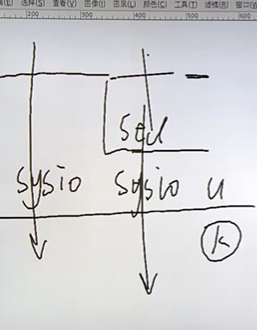 选择(S) 查看(V) 图像(I) 图层(L) 颜色(C) 工具(T) 窗口(W)
200 300 400 500 600
Sou
sysio sysio u
k